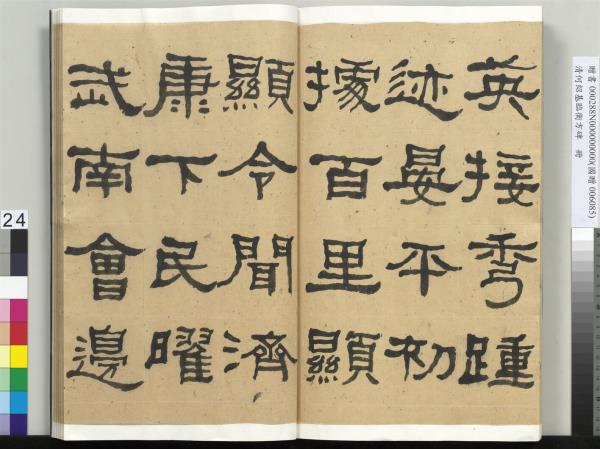 英接秀踵
迹晏平初
據百里顯
顯令聞濟
康下民曜
武南會邊
贈書 000288N000000000(國贈 006085)
清何紹基臨衡方碑 冊
24